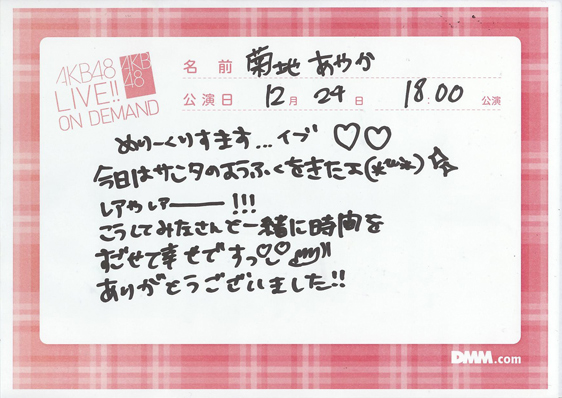 AKB48
LIVE!!
ON DEMAND
AKB
48
名前 菊地あやか
公演日 12月24日 18:00 公演
めりーくりすます...イブ♡♡
今日はサンタのようふくをきたよ(*¨*)☆
レアやレアーー!!!
こうしてみなさんと一緒に時間を
すごせて幸せですっ
ありがとうございました!!
DMM.com